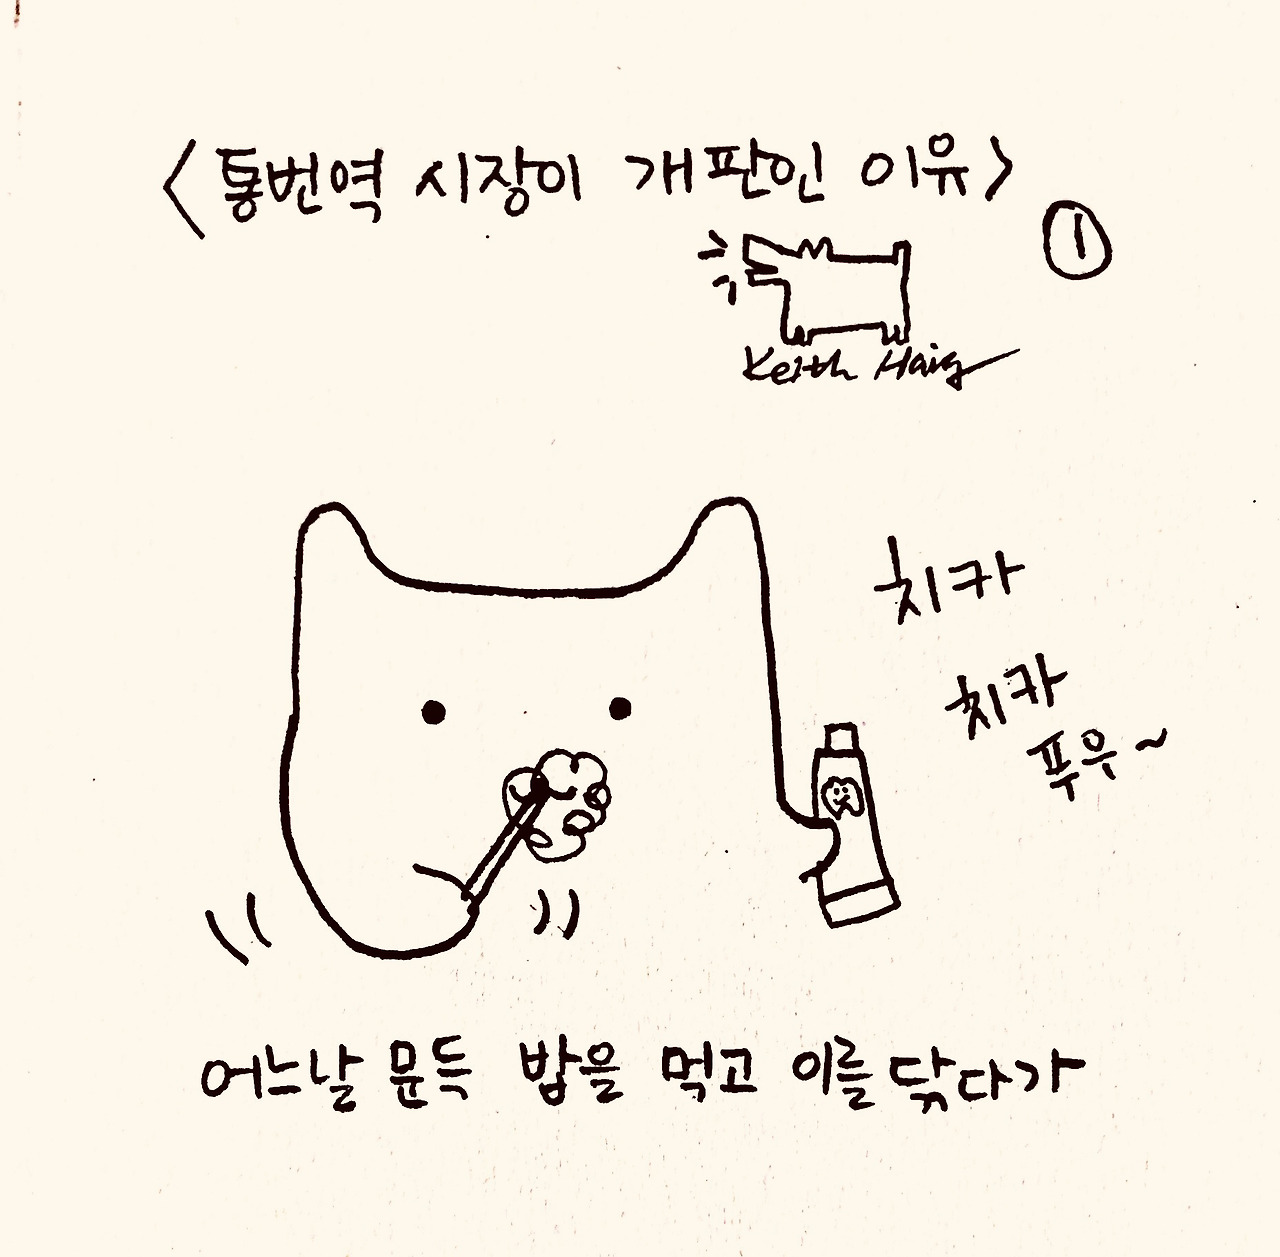 <통번역 시장이 개판인 이유>
①
Keith Haig
치카
치카
푸우~
어느날 문득 밥을 먹고 이를 닦다가